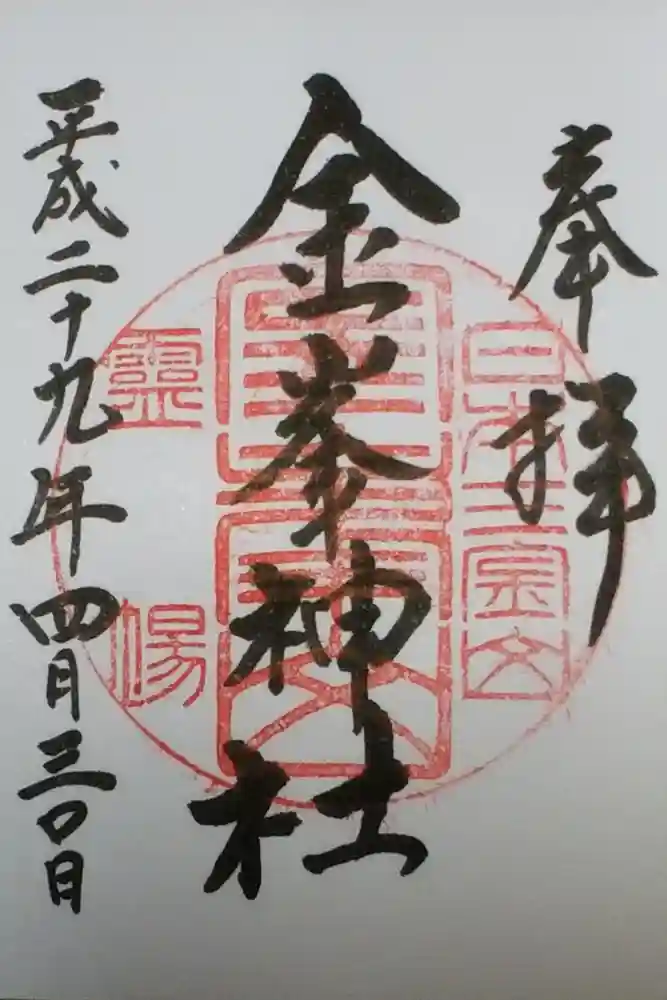 奉拝
日本三
金峯神社
靈場
平成二十九年四月三〇日